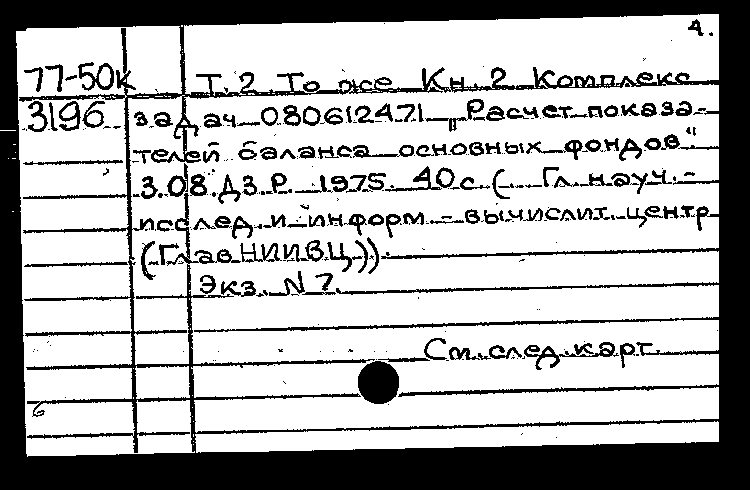 4.
77-50к Т. 2 То же Кн. 2 Комплекс
3196 задач 080612471 „Расчет показа-
телей баланса основных фондов".
3.08.ДЗ.Р. 1975. 40с ( Гл. науч.-
исслед. и информ.-вычислит. центр
(ГлавНИИВЦ)).
Экз. N 7.
См. след. карт.
6